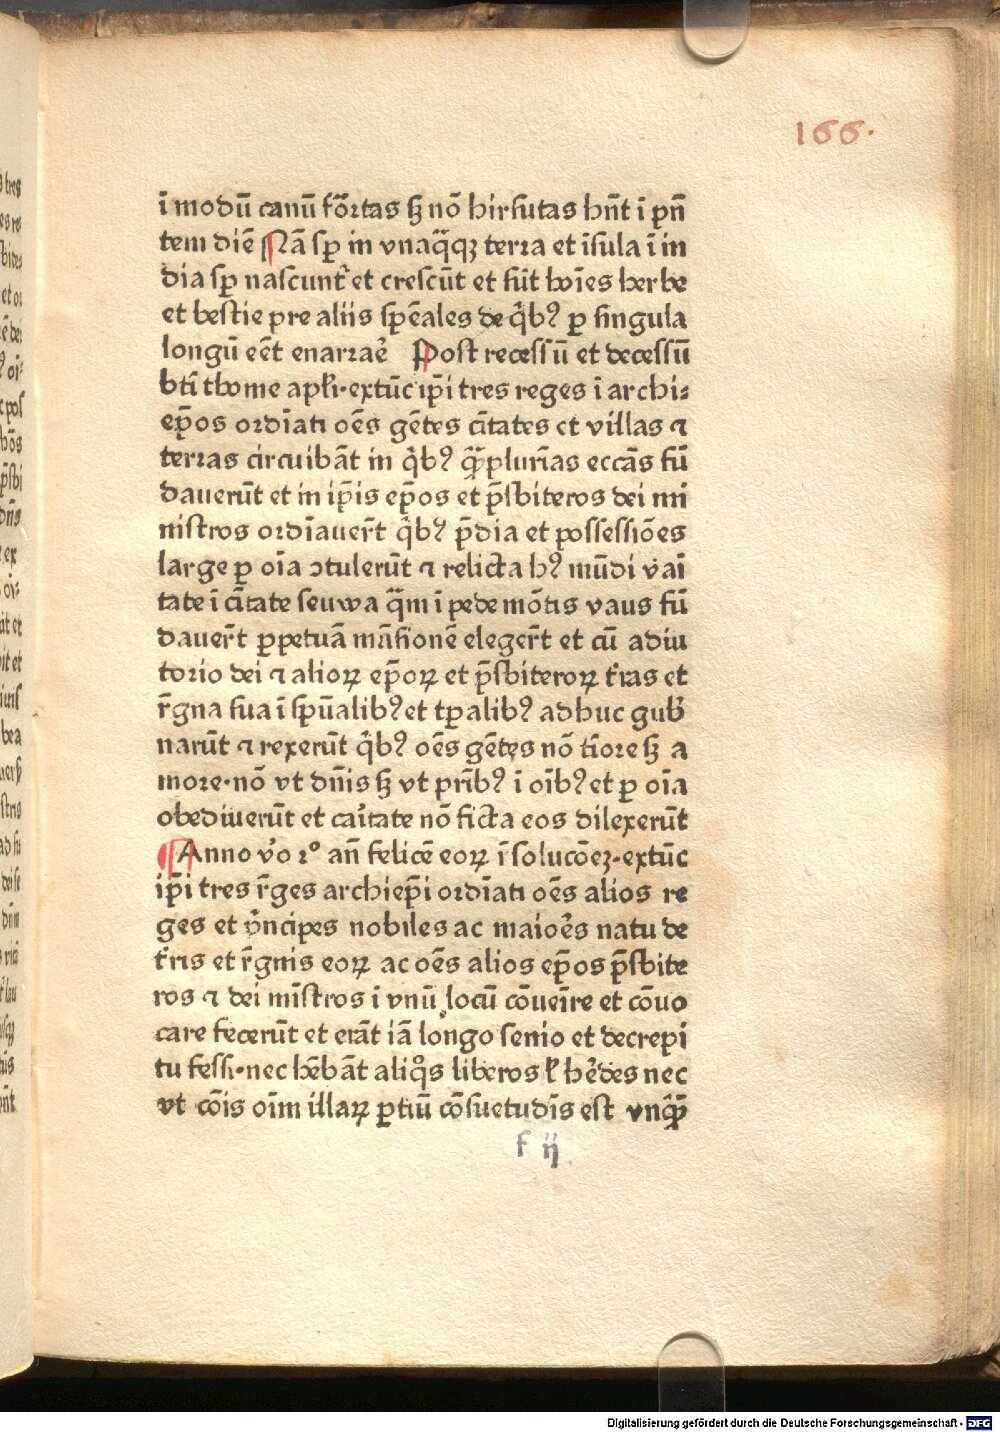 166.
ī modū canū fõrtas sȝ nō hirsutas hn̄t ī pn̄
tem diē Nā sꝑ in vnaq̈qȝ terra et īsula ī in
dia sꝑ nascunt᷑ et crescūt et sūt hoīes herbe
et bestie pre aliis spēales de qͥbꝰ ꝑ singula
longū eēt enarraꝛ̄ Post recessū et decessū
btī thome apl̄i·extūc ip̄i tres reges ī archi⸗
ep̄os ordīati oēs gētes cītates et villas ⁊
terras circuibāt in qͥbꝰ qꝑplurīas eccās fū
dauerūt et in ip̄is ep̄os et p̄sbiteros dei mi
nistros ordīauer̄t qͥbꝰ p̄dia et possessiōes
large ꝑ oīa ↄtulerūt ⁊ relicta hꝰ mūdi v̄aī
tate ī cītate seuwa q̄m ī pede mōtis vaus fū
dauer̄t ꝑpetuā māsionē eleger̄t et cū adiu
torio dei ⁊ alioꝝ ep̄oꝝ et p̄sbiteroꝝ t̄ras et
r̄gna sua ī spūalibꝰ et tꝑalibꝰ adhuc gub̄
narūt ⁊ rexerūt qͥbꝰ oēs gētes nō tīore sȝ a
more·nō vt dn̄is sȝ vt pr̄ibꝰ ī oībꝰ et ꝑ oīa
obediuerūt et caītate nō ficta eos dilexerūt
Anno v̄o 2º an̄ felicē eoꝝ ī solucōeȝ·extūc
ip̄i tres r̄ges archiep̄i ordīati oēs alios re
ges et pͥncipes nobiles ac maioēs natu de
t̄ris et r̄gnis eoꝝ ac oēs alios ep̄os p̄sbite
ros ⁊ dei mīstros ī vnū locū cōueīre et cōuo
care fecerūt et erāt iā longo senio et decrepi
tu fessi·nec hēbāt aliqͦs liberos ł hēdes nec
vt cōis oīm illaꝝ ꝑtiū cōsuetudīs est vnqꝫ
f ij
Digitalisierung gefördert durch die Deutsche Forschungsgemeinschaft - DFG